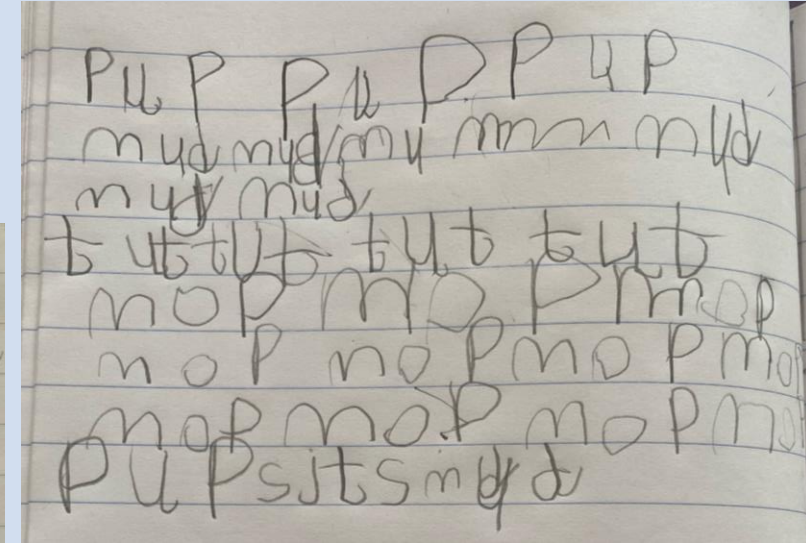 pup pu p pup
mud mud mu mmm mud
mud mud
tut tut tut tut
mop mo p mop
mop mop mop mo
mop mop mop mo
pups sits mud